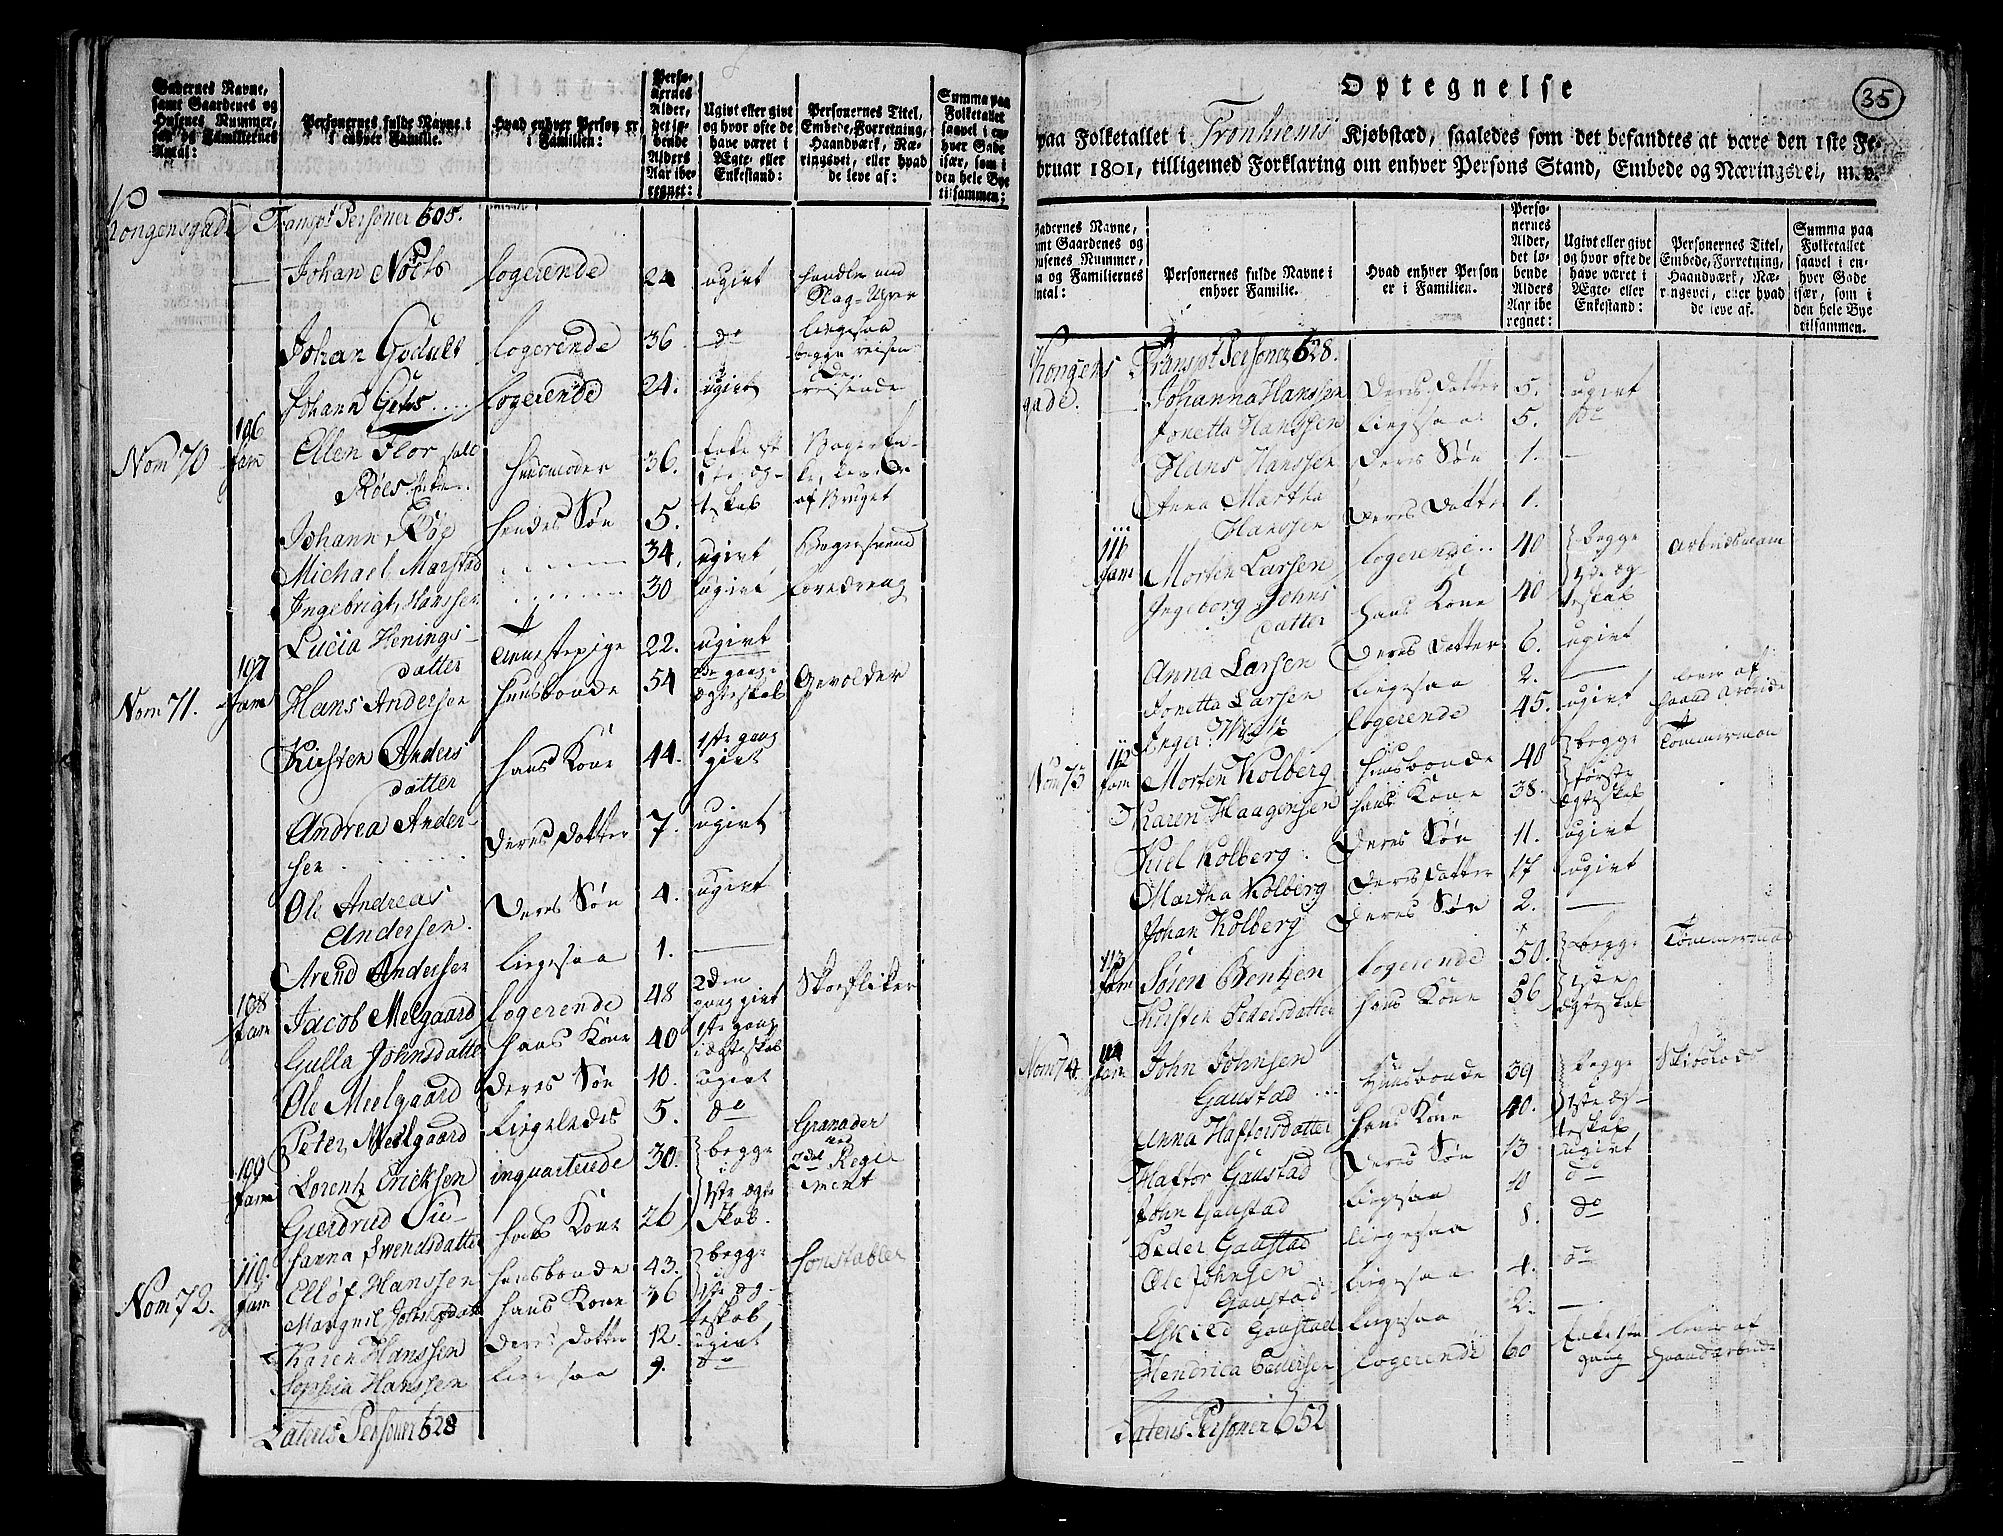 Gadernes Navne,
samt Gaardenes og
Husenes Nummer,
saa og Familiernes
Antal:
Personernes fulde Navne i
enhver Familie.
Hvad enhver Person er
i Familien:
Perso-
nernes
Alder,
det lø-
bende
Alders
Aar ibe-
regnet:
Ugivt eller givt
og hvor ofte de
have været i
Ægte- eller
Enkestand:
Personernes Titel,
Embede, Forretning,
Haandværk, Næ-
ringsvei, eller hvad
de leve af:
Summa paa
Folketallet
saavel i en-
hver Gade
især, som i
den hele Bye
tilsammen:
Kongensgade Transpt Personer 605.
Johan Nolts logerende 24 ugivt
Johan Godult logerende 36 do
ligesaa
begge reisen-
de
Johann Gits logerende 24. ugivt reisende
Nom 70 106 fam Ellen Flor sal
Røes Enke. huusmoder 36.
af Bruget
Johann Røe hendes Søn 5.
Michael Marstad 34. ugivt Bagersvend
Ingebrigt Hanssen 30 ugivt Læredreng
Lucia Henings-
datter Tienestepige 22. ugivt
Nom 71. 107 fam Hans Andersen huusbonde 54 2de gang
Ægteskab Gevolder
Kirsten Anders
datter hans Kone 44. 1ste gang
givt
Andrea Ander-
sen deres Datter 7. ugivt
Ole Andreas
Andersen. deres Søn 4. ugivt
Arend Andersen ligesaa 1. —
108 fam Jacob Melgaard logerende 48 2den
gang givt Skoeflikker
Gulla Johnsdatter hans Kone 40 1ste gang
i ægteskab
Ole Mielgaard deres Søn 10. ugivt
Peter Meelgaard ligeledes 5. do
109 fam Lorentz Ericksen inquarterede 30. begge
i
1ste ægte
Skab. Granader
ved
2det Regi
ment
Giærdrud Su-
sanna Swendsdatter hans Kone 26
Nom 72. 110. fam Elløf Hanssen huusbonde 43. begge
i
1ste Æg-
teskab Constabler
Margrit Johnsdatt hans Kone 36
Karen Hanssen deres Datter 12. ugivt
Sophia Hanssen ligesaa 9. do
Lateris Personer 628
35
Optegnelse
paa Folketallet i Tronhiems Kjøbstæd, saaledes som det befandtes at være den 1ste Fe-
bruar 1801, tilligemed Forklaring om enhver Persons Stand, Embede og Næringsvei, m. v.
Gadernes Navne,
samt Gaardenes og
Husenes Nummer,
saa og Familiernes
Antal:
Personernes fulde Navne i
enhver Familie.
Hvad enhver Person
er i Familien.
Perso-
nernes
Alder,
det lø-
bende
Alders
Aar ibe
regnet:
Ugivt eller givt
og hvor ofte de
have været i
Ægte- eller
Enkestand:
Personernes Titel,
Embede, Forretning,
Haandværk, Næ-
ringsvei, eller hvad
de leve af.
Summa paa
Folketallet
saavel i en-
hver Gade
især, som i
den hele Bye
tilsammen.
Kongens
gade. Transpt Personer 628.
Johanna Hanssen deres Datter 5. ugivt
Jonetta Hanssen ligesaa 5. do
Hans Hanssen deres Søn 1. —
Anna Martha
Hanssen deres Datter 1.
111 fam Morten Larsen logerende 40 begge
1ste æg-
teskab Arbeidsmann
Ingeborg Johns
datter hans Kone 40
Anna Larsen deres Datter 6. ugivt
Jonetta Larsen ligesaa 2. —
Inger logerende 45. ugivt lever af
haand Arbeide
Nom 73 112 fam Morten Kolberg huusbonde 40 begge
i
første
ægteskab Tømmerman
Karen Haagensen hans Kone 38.
Kiel Kolberg deres Søn 11. ugivt
Martha Kolberg deres Datter 17 ugivt
Johan Kolberg deres Søn 2. —
113 fam Søren Bentzen logerende 50. begge
1ste
ægteskab Tømmermand
Kirsten Pedersdatter hans Kone 56
Nom 74. 114 fam John Johnsen
Gaustad huusbonde 39 begge
1ste æg-
teskab
Anna Haftorsdatter hans Kone 40.
Haftor Gaustad deres Søn 13 ugivt
John Gaustad ligesaa 10 do
Peder Gaustad ligesaa 8. do
Ole Johnsen
Gaustad ligesaa 4. do
Eskild Gaustad ligesaa 2. —
Hendrica Pedersen logerende 60 Enke 1ste
gang lever af
haandarbeide
Lateris Personer 652